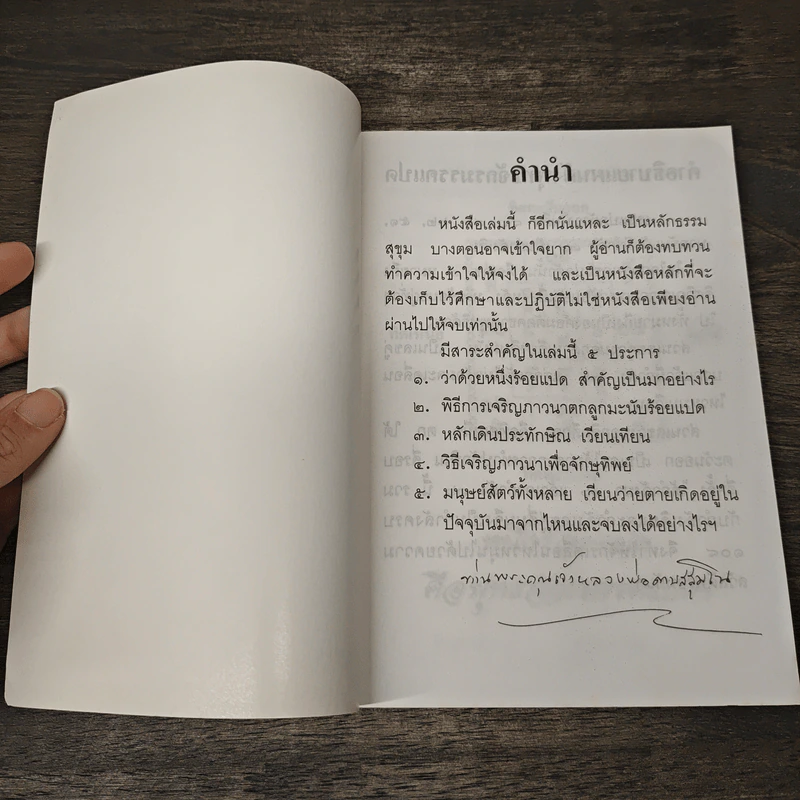 คำนำ
หนังสือเล่มนี้ ก็อีกนั่นแหละ เป็นหลักธรรม
สุขุม บางตอนอาจเข้าใจยาก ผู้อ่านก็ต้องทบทวน
ทำความเข้าใจให้จงได้ และเป็นหนังสือหลักที่จะ
ต้องเก็บไว้ศึกษาและปฏิบัติไม่ใช่หนังสือเพียงอ่าน
ผ่านไปให้จบเท่านั้น
มีสาระสำคัญในเล่มนี้ ๕ ประการ
๑. ว่าด้วยหนึ่งร้อยแปด สำคัญเป็นมาอย่างไร
๒. พิธีการเจริญภาวนาตกลูกมะนับร้อยแปด
๓. หลักเดินประทักษิณ เวียนเทียน
๔. วิธีเจริญภาวนาเพื่อจักษุทิพย์
๕. มนุษย์สัตว์ทั้งหลาย เวียนว่ายตายเกิดอยู่ใน
ปัจจุบันมาจากไหนและจบลงได้อย่างไรฯ
ท่านพระคุณเจ้าหลวงพ่อ